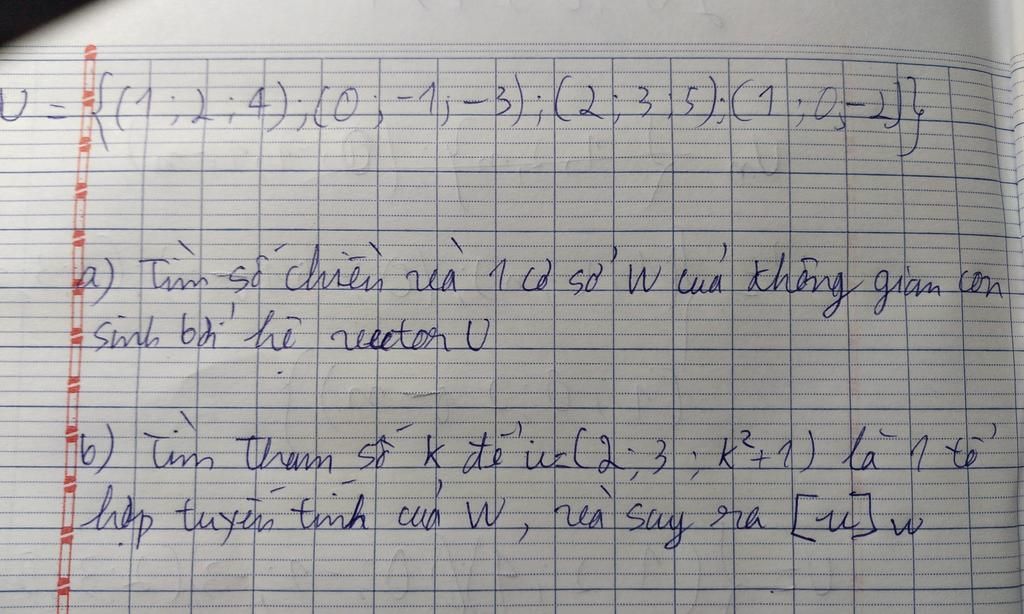 U = {(1 ; 2 ; 4) ; (0 ; -1 ; -3) ; (2 ; 3 ; 5) ; (1 ; 0 ; -2)}
a) Tìm số chiều và 1 cơ sở W của không gian con
sinh bởi hệ vector U
b) Tìm tham số k để u = (2 ; 3 ; k²+1) là 1 tổ
hợp tuyến tính của W, và suy ra [u]w